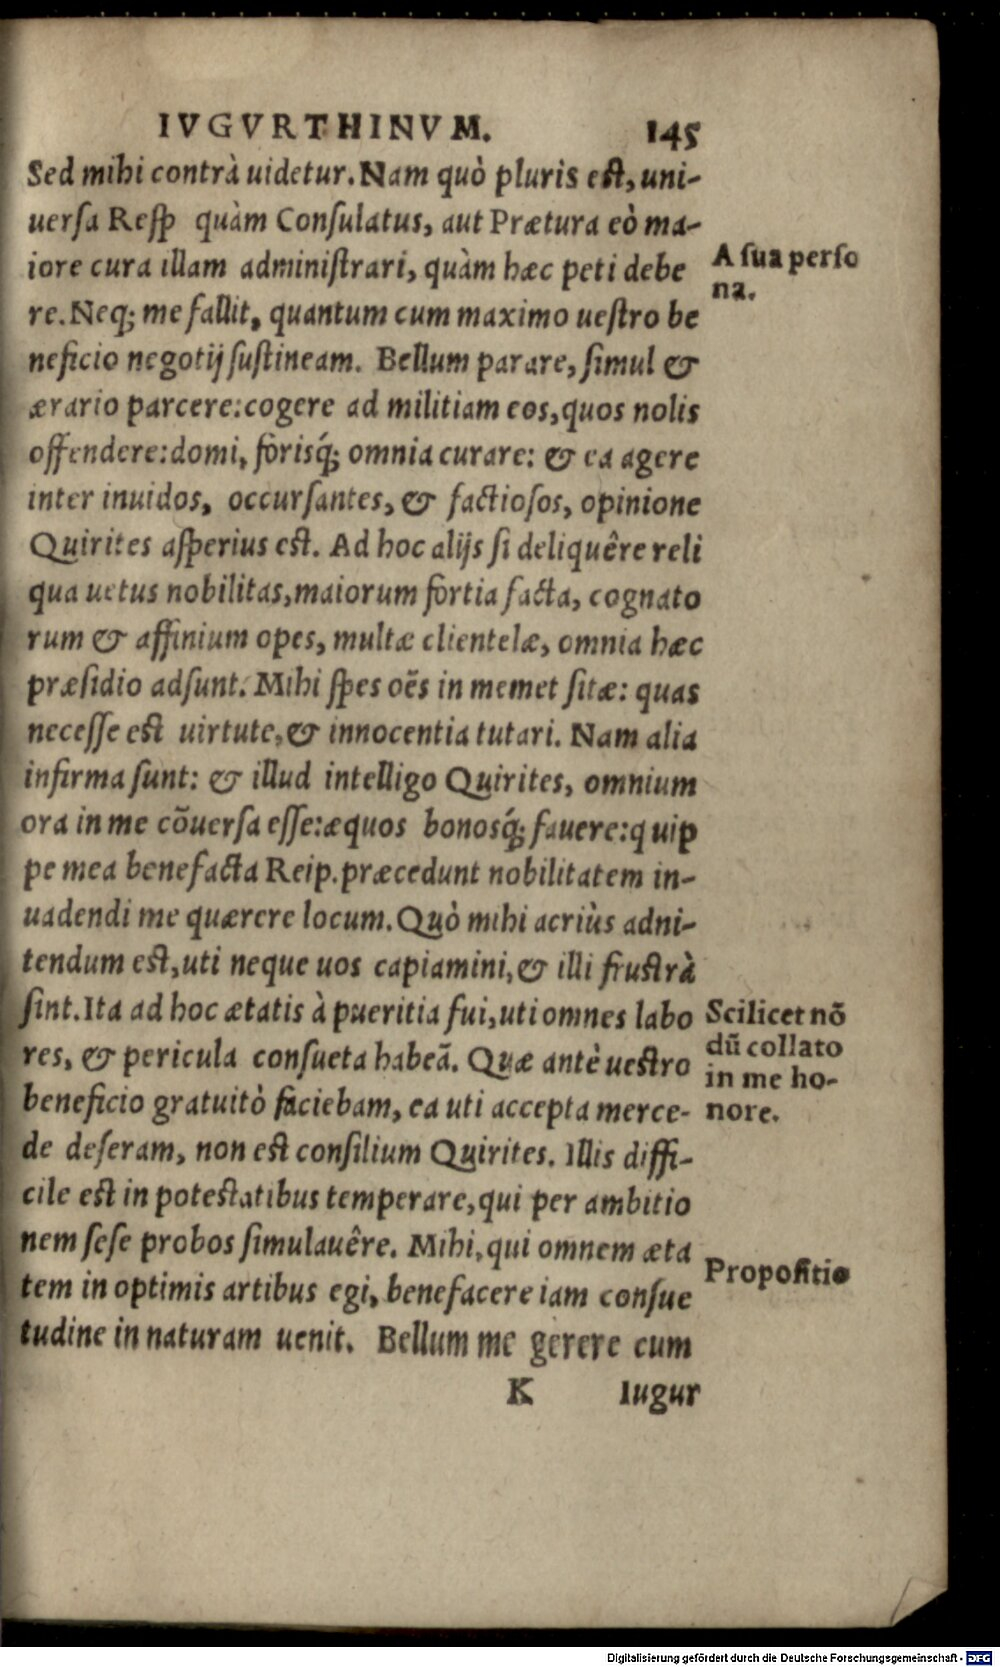 IVGVRTHINVM. 145
Sed mihi contrà uidetur. Nam quò pluris est, uni-
uersa Resp quàm Consulatus, aut Prætura eò ma-
iore cura illam administrari, quàm hæc peti debe
re. Neq; me fallit, quantum cum maximo uestro be
neficio negotij sustineam. Bellum parare, simul &
ærario parcere: cogere ad militiam eos, quos nolis
offendere: domi, forisq́; omnia curare: & ea agere
inter inuidos, occursantes, & factiosos, opinione
Quirites asperius est. Ad hoc alijs si deliquêre reli
qua uetus nobilitas, maiorum fortia facta, cognato
rum & affinium opes, multæ clientelæ, omnia hæc
præsidio adsunt. Mihi spes oẽs in memet sitæ: quas
necesse est uirtute, & innocentia tutari. Nam alia
infirma sunt: & illud intelligo Quirites, omnium
ora in me cõuersa esse: æquos bonosq́; fauere: quip
pe mea benefacta Reip. præcedunt nobilitatem in-
uadendi me quærere locum. Quò mihi acriùs adni-
tendum est, uti neque uos capiamini, & illi frustrà
sint. Ita ad hoc ætatis à pueritia fui, uti omnes labo
res, & pericula consueta habeã. Quæ antè uestro
beneficio gratuitò faciebam, ea uti accepta merce-
de deseram, non est consilium Quirites. Illis diffi-
cile est in potestatibus temperare, qui per ambitio
nem sese probos simulauêre. Mihi, qui omnem æta
tem in optimis artibus egi, benefacere iam consue
tudine in naturam uenit. Bellum me gerere cum
K Iugur
A sua perso
na.
Scilicet nõ
dũ collato
in me ho-
nore.
Propositio
Digitalisierung gefördert durch die Deutsche Forschungsgemeinschaft - DFG